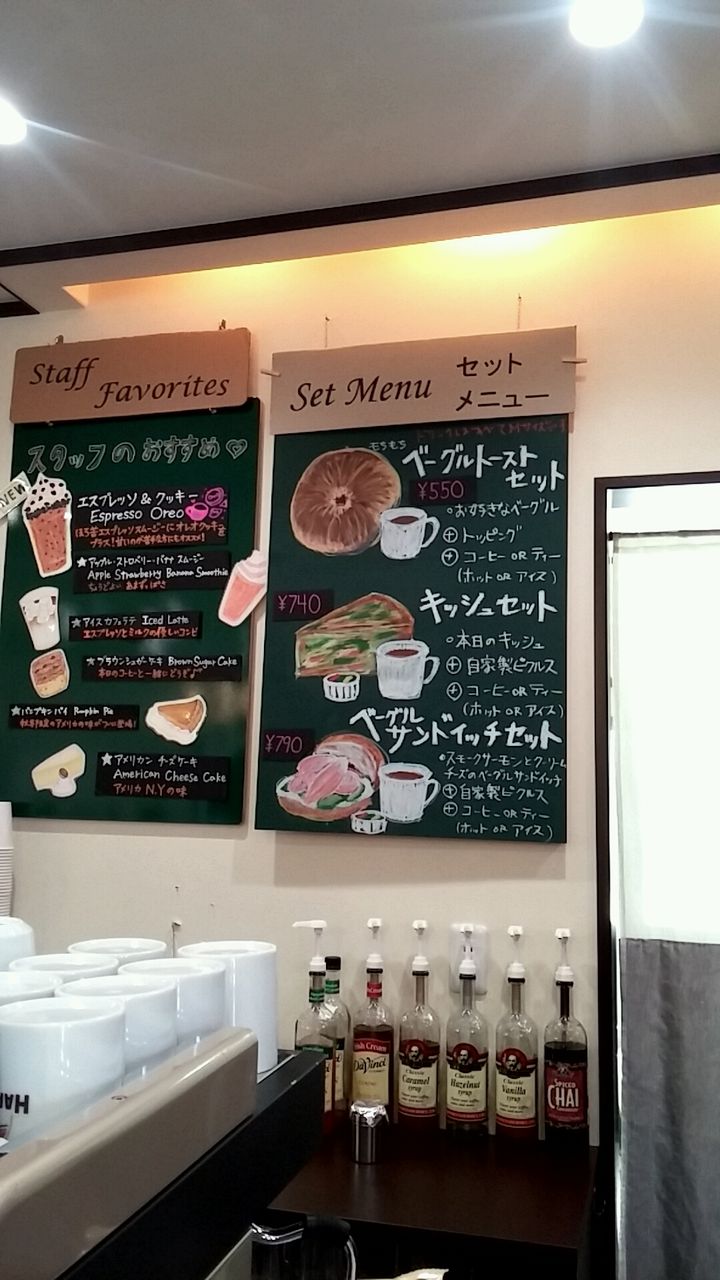 Staff
Favorites
スタッフのおすすめ♡
NEW
エスプレッソ & クッキー
Espresso Oreo
ほろ苦エスプレッソスムージーにオレオクッキーを
プラス!甘いのが苦手な方にもオススメ!
★アップル・ストロベリー・バナナ スムージー
Apple Strawberry Banana Smoothie
★アイスカフェラテ Iced Latte
エスプレッソとミルクの優しいコンビ
★ブラウンシュガーケーキ Brown Sugar Cake
本日のコーヒーと一緒にどうぞ♪
★パンプキンパイ Pumpkin Pie
★アメリカン チーズケーキ
American Cheese Cake
アメリカ N.Yの味
Set Menu
セット
メニュー
もちもち
ベーグルトースト
セット
¥550
○お好きなベーグル
⊕トッピング
⊕コーヒー OR ティー
(ホット OR アイス)
¥740
キッシュセット
○本日のキッシュ
⊕自家製ピクルス
⊕コーヒー OR ティー
(ホット OR アイス)
ベーグル
サンドイッチセット
¥790
○スモークサーモンとクリーム
チーズのベーグルサンドイッチ
⊕自家製ピクルス
⊕コーヒー OR ティー
(ホット OR アイス)
Irish Cream
DaVinci
Classic
Caramel
syrup
Classic
Hazelnut
syrup
Classic
Vanilla
syrup
SPICED
CHAI